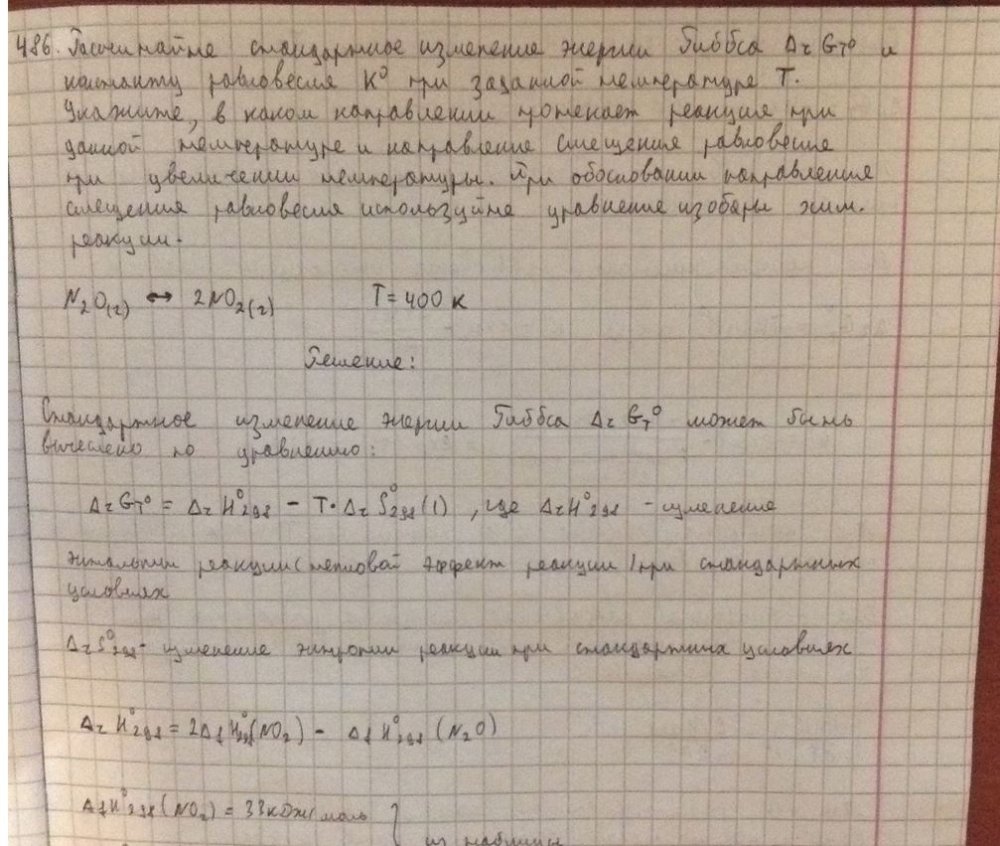 486. Рассчитайте стандартное изменение энергии Гиббса ΔrG_T⁰ и
константу равновесия K⁰ при заданной температуре T.
Укажите, в каком направлении протекает реакция при
данной температуре и направление смещения равновесия
при увеличении температуры. При обосновании направления
смещения равновесия используйте уравнение изобары хим.
реакции.
N₂O(г) ↔ 2NO₂(г) T = 400 К
Решение:
Стандартное изменение энергии Гиббса ΔrG_T⁰ может быть
вычислено по уравнению:
ΔrG_T⁰ = ΔrH⁰₂₉₈ – T·ΔrS⁰₂₉₈ (1), где ΔrH⁰₂₉₈ – изменение
энтальпии реакции (тепловой эффект реакции) при стандартных
условиях
ΔrS⁰₂₉₈ – изменение энтропии реакции при стандартных условиях
ΔrH⁰₂₉₈ = 2ΔfH⁰₂₉₈(NO₂) – ΔfH⁰₂₉₈(N₂O)
ΔfH⁰₂₉₈(NO₂) = 33 кДж/моль
из таблицы